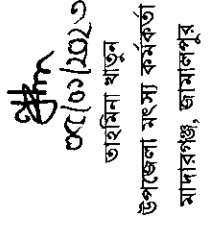 ০৫/০১/২০২৩
তাহমিনা খাতুন
উপজেলা মৎস্য কর্মকর্তা
মাদারগঞ্জ, জামালপুর